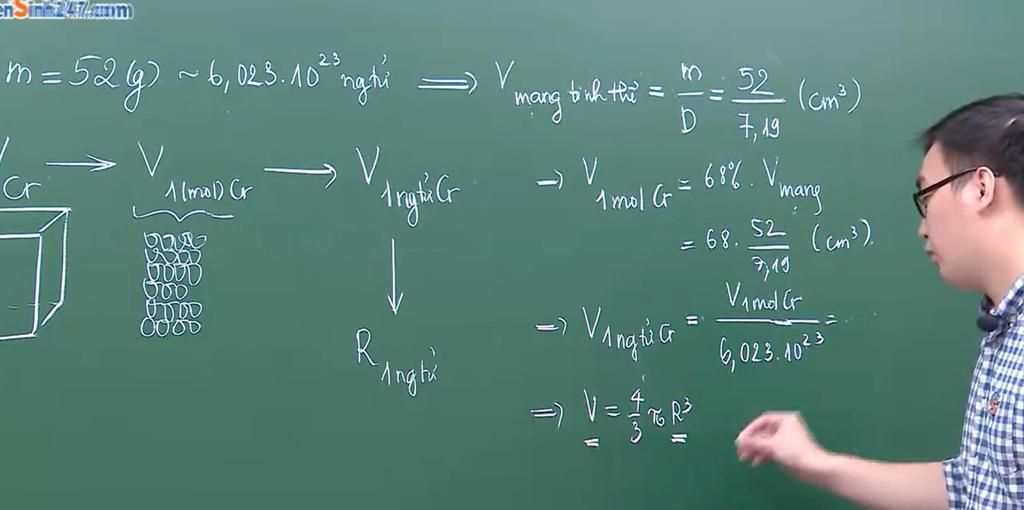 enSinh247.com
m = 52 (g) ~ 6,023.10²³ ngtử ⟹ V mạng tinh thể = m/D = 52/7,19 (cm³)
V Cr → V 1(mol) Cr → V 1ngtử Cr
→ V 1mol Cr = 68% . V mạng
= 68 . 52/7,19 (cm³).
⇒ V 1ngtử Cr = V 1mol Cr / 6,023.10²³ = .....
R 1ngtử
⇒ V = 4/3 π R³